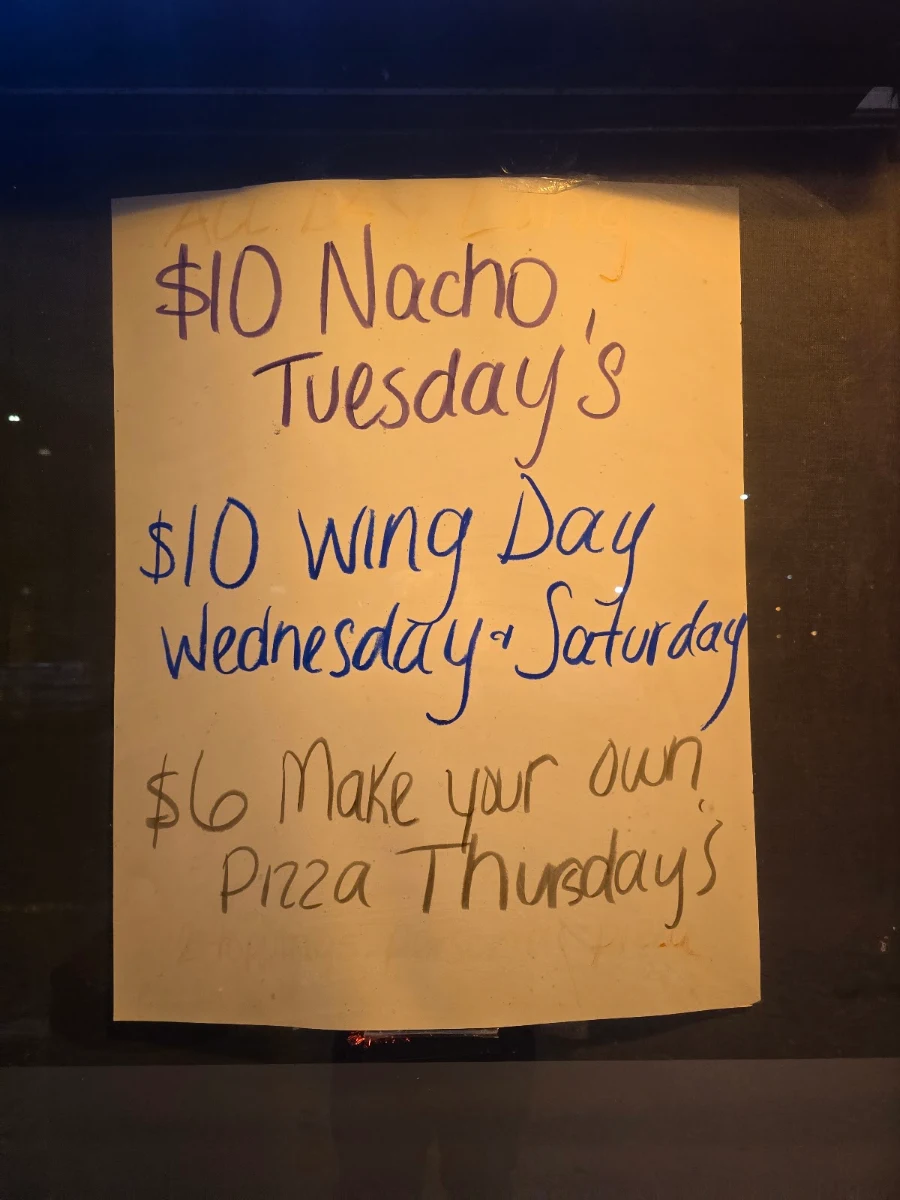 All Day Long
$10 Nacho
Tuesday's
$10 Wing Day
Wednesday & Saturday
$6 Make your own
Pizza Thursday's